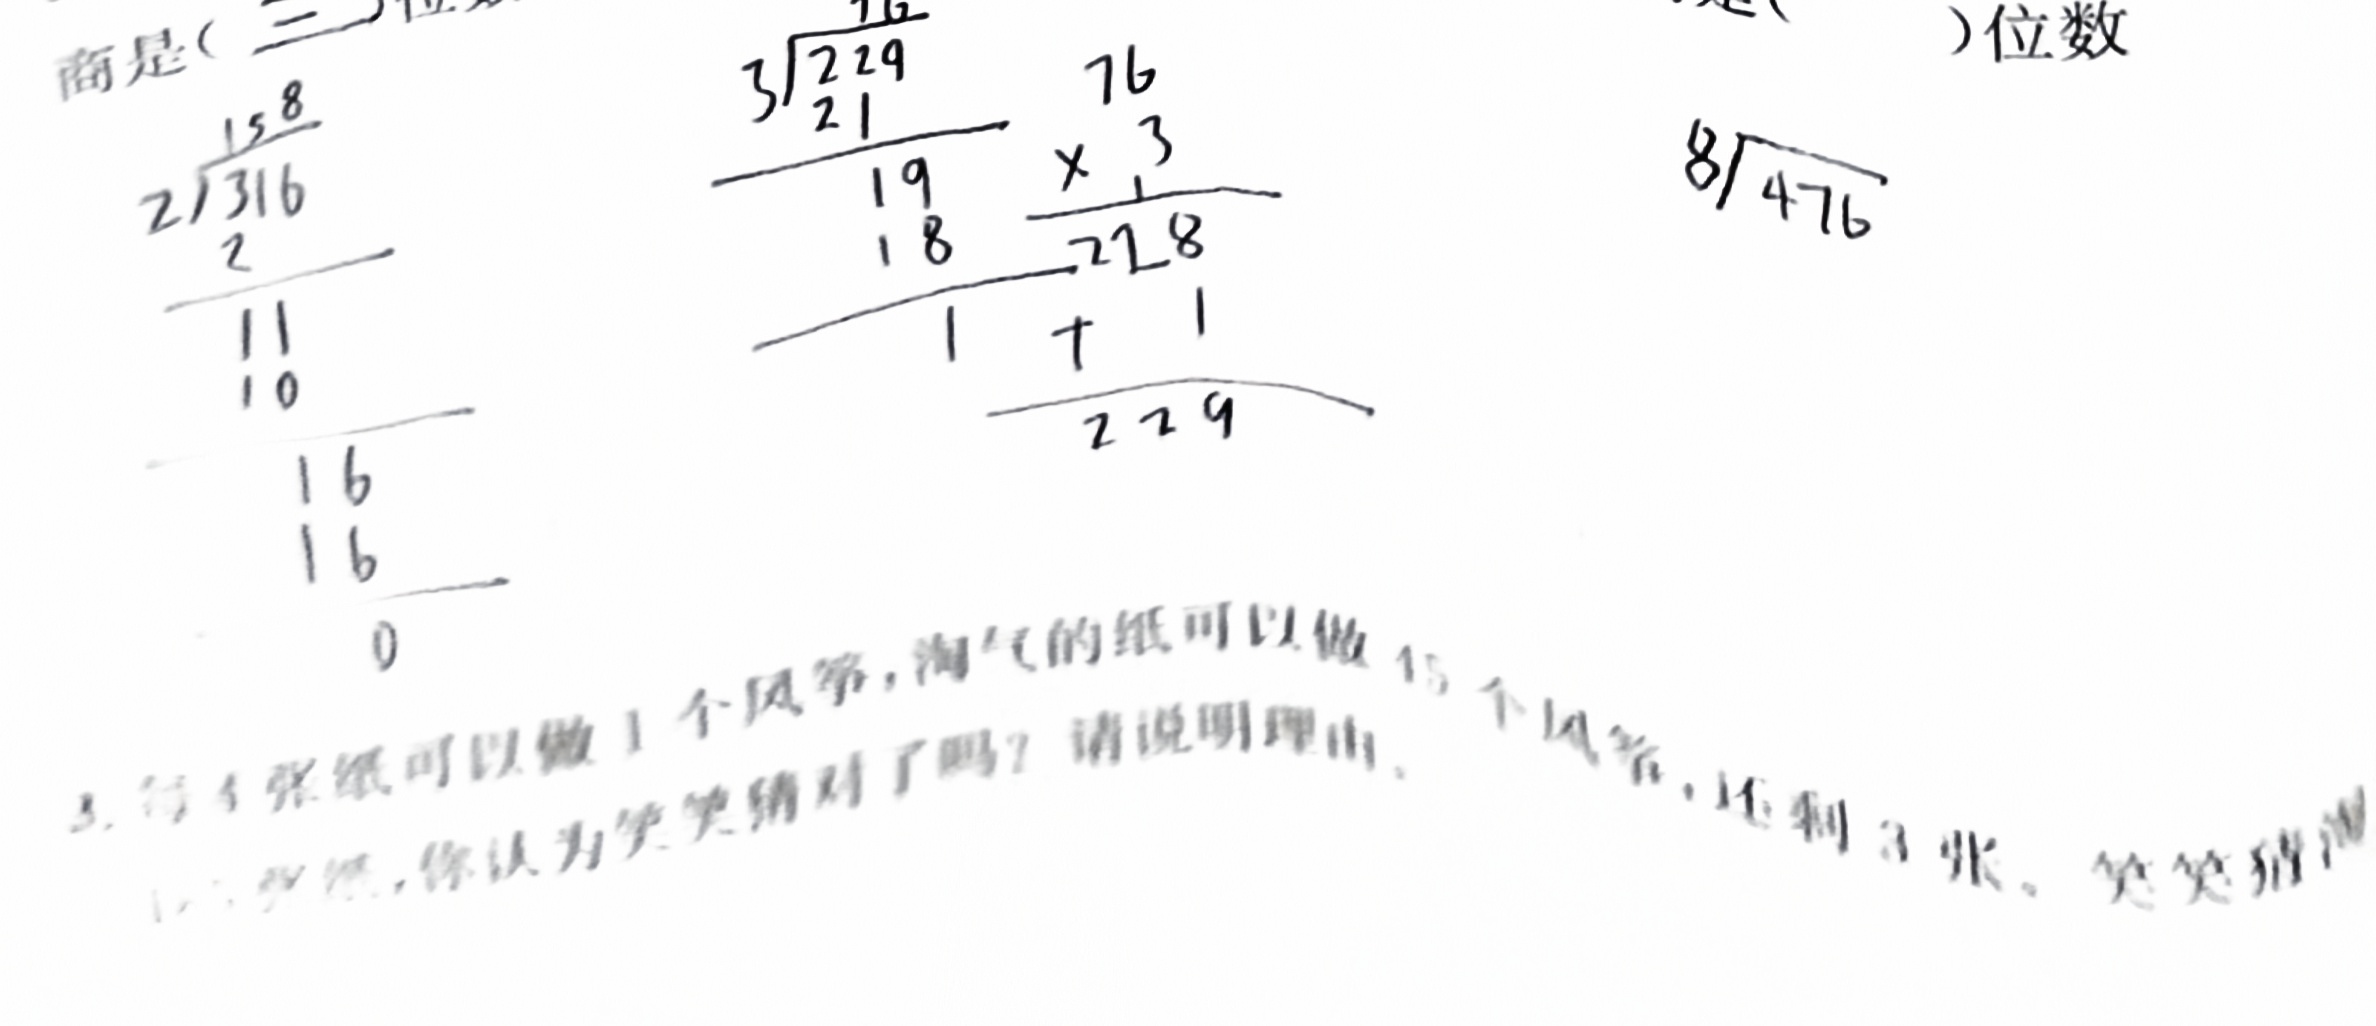 商是(三)位数
是( )位数
158
2)316
2
11
10
16
16
0
76
3)229
21
19
18
1
76
× 3
1
228
+ 1
229
8)476
3. 每4张纸可以做1个风筝,淘气的纸可以做15个风筝,还剩3张。笑笑猜淘
张纸,你认为笑笑猜对了吗?请说明理由。